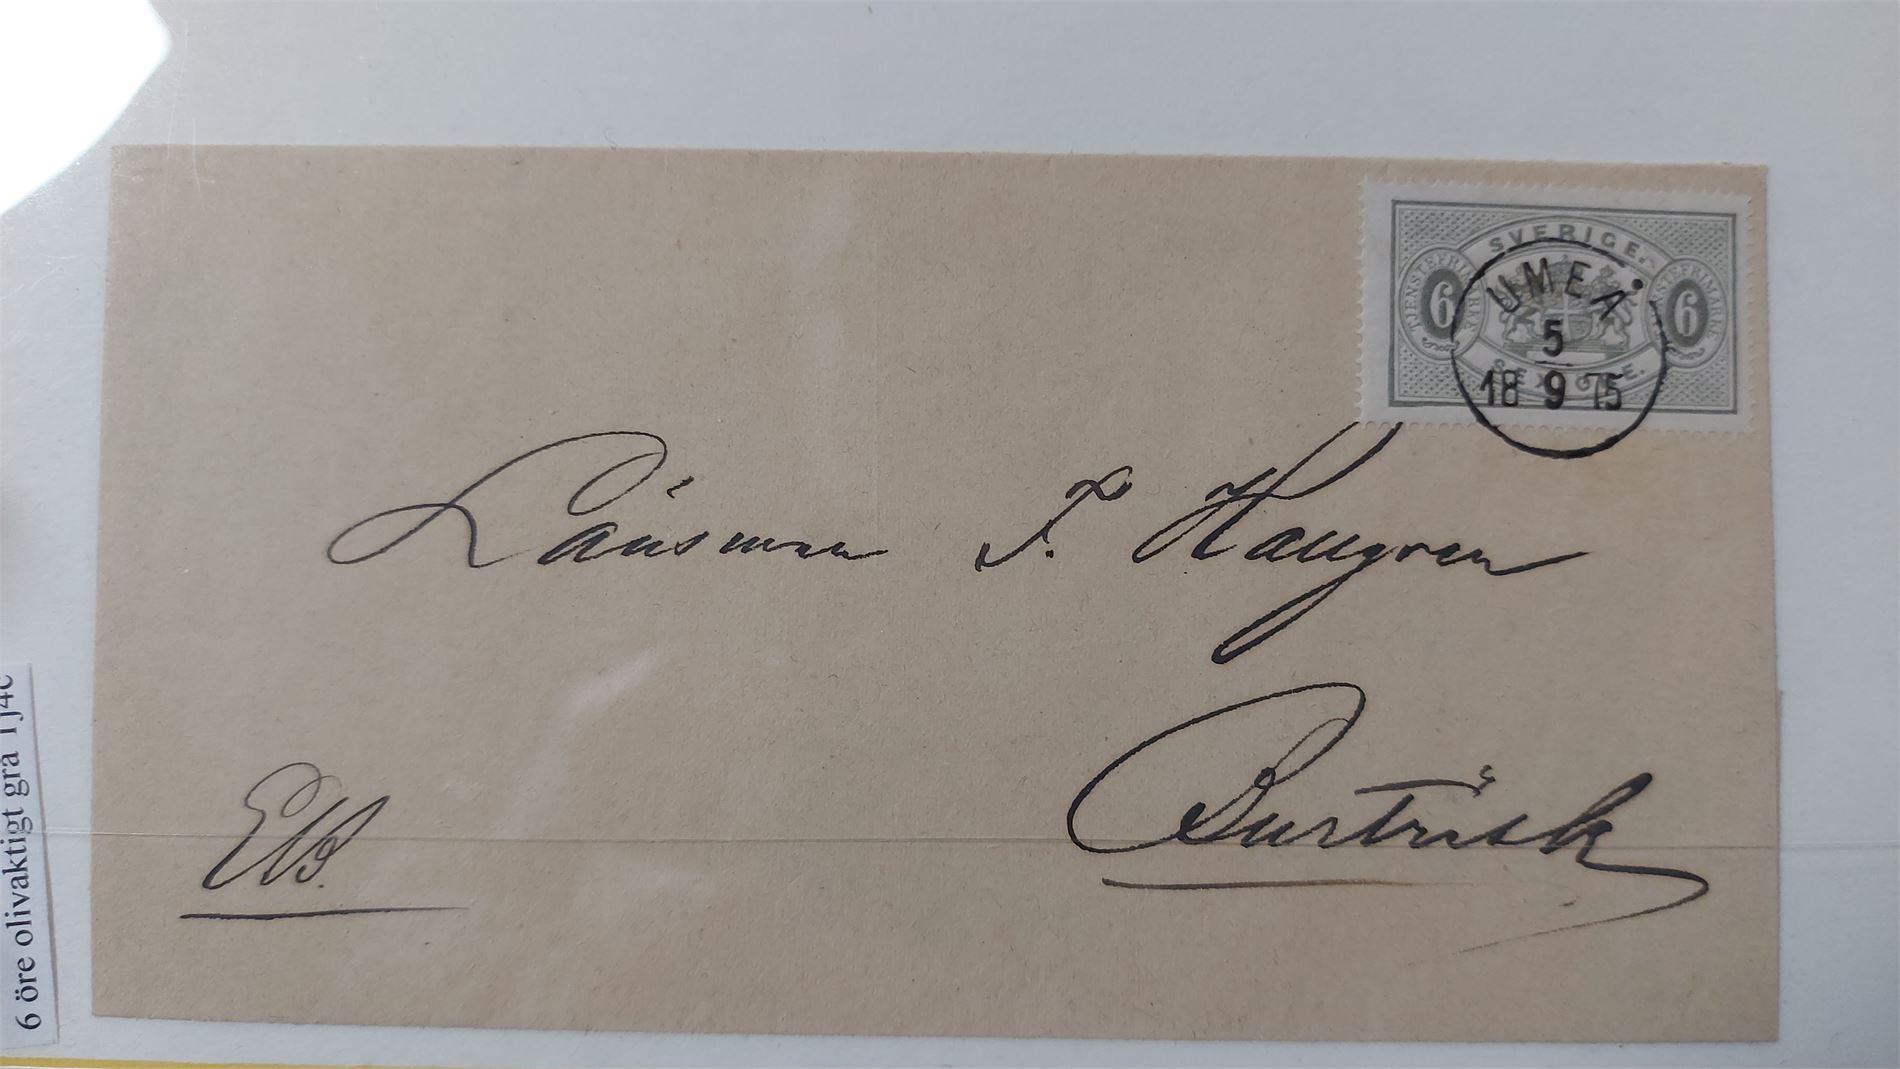 SVERIGE.
TJENSTEFRIMARKE
6
6
TJENSTEFRIMARKE
SEX ÖRE.
UMEÅ
5
18 9 75
Länsman F. Hallgren
Burträsk
6 öre olivaktigt grå Tj4c